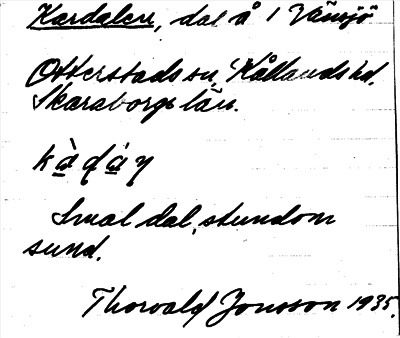 Kardalen, dal å i Vänsjö
Otterstads sn, Kållands hd.
Skaraborgs län.
Smal dal, stundom
sund.
Thorvald Jonsson 1935.